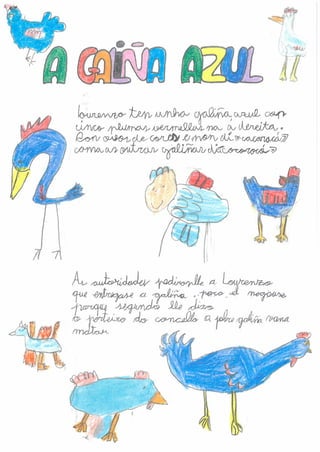 A GALIÑA AZUL
Lourenzo ten unha galiña azul con
cinco plumas vermellas na á dereita.
Pon ovos de cores e non di cacaracá
coma as outras galiñas di cocorocó
As autoridades pedíronlle a Lourenzo
que entregase a galiña, pero el negouse
porque segundo lle dixo
o porteiro do concello a pobre galiña vana
matar.